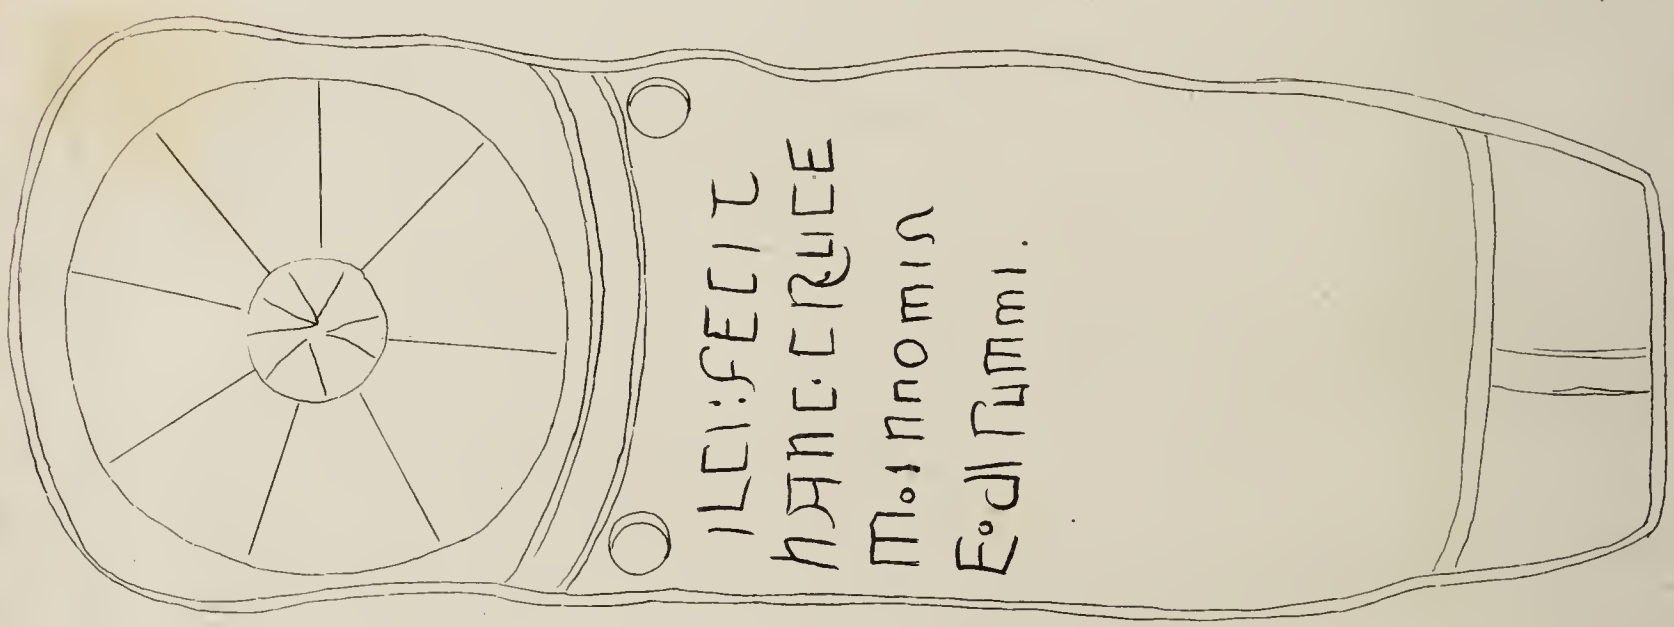 ILCI:FECIT
hANC·CRUCE
M·INNOMIN
E·dI ſummi.